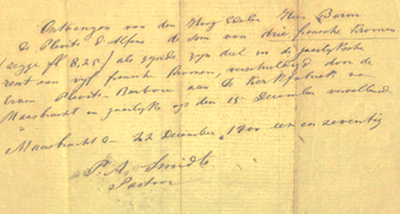 Ontvangen van den Hoog Edelen Heer Baron
De Plevits d'Alfens de som van drie fransche Kronen
(zegge fl 8,25) als zijnde zijn deel in de jaarlyksche
rent van vyf fransche Kronen, verschuldigd door de
Erven Plevits Barbou aan de Kerkfabriek van
Maasbracht en jaarlyks op den 15 December vervallend
Maasbracht den 22 December 1800 een en zeventig
P. A. Smidts
Pastoor